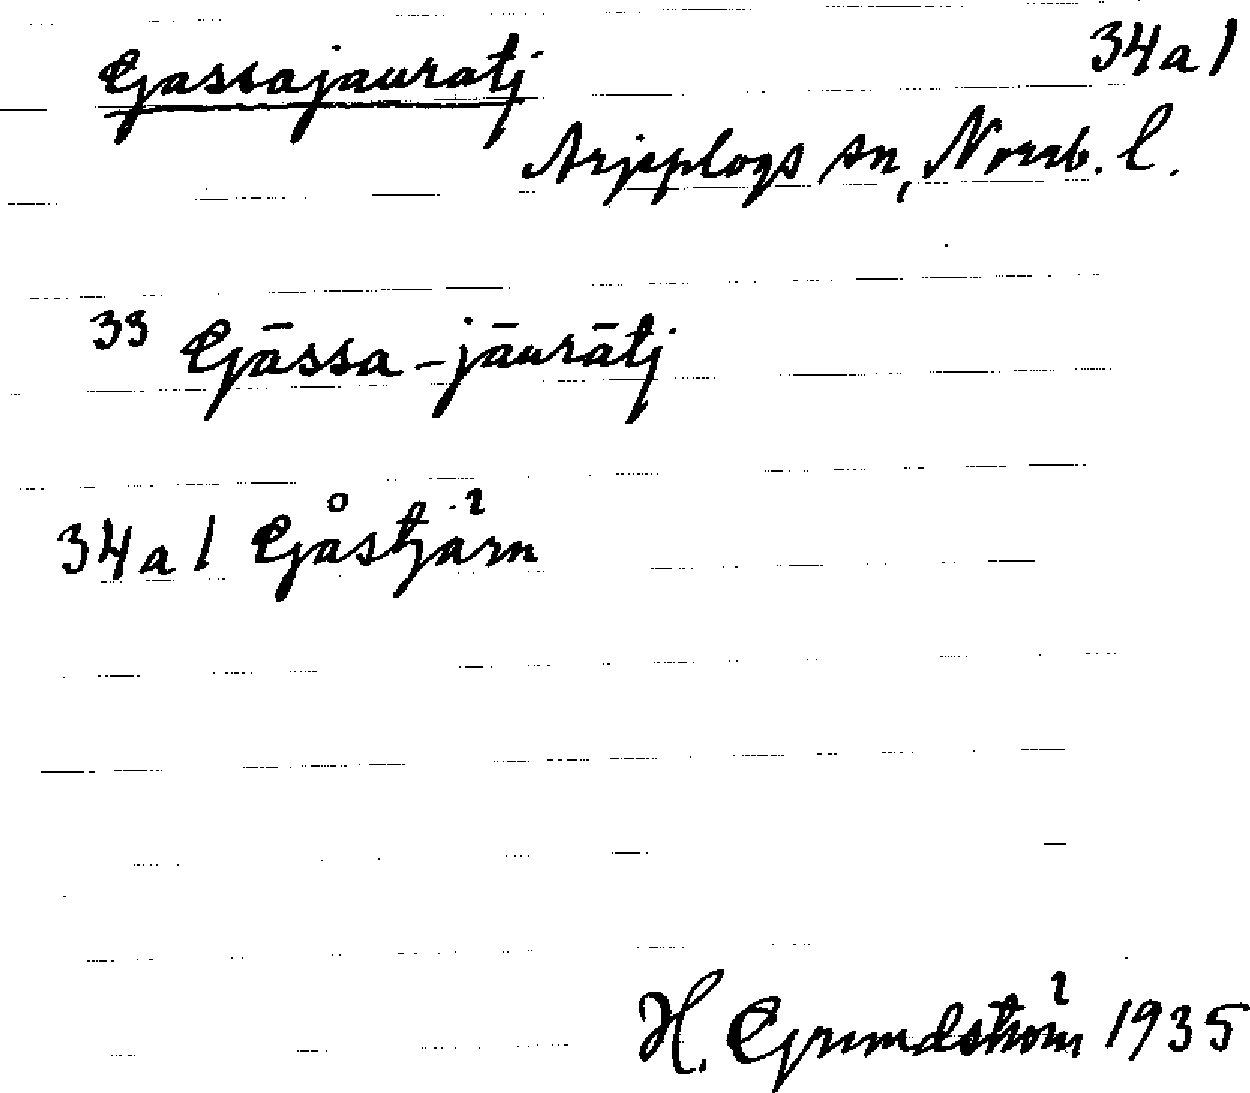 Gassajauratj 34a1
Arjeplogs sn, Norrb. l.
33 Gāssa-jāurātj
34a1 Gåstjärn
H. Grundström 1935